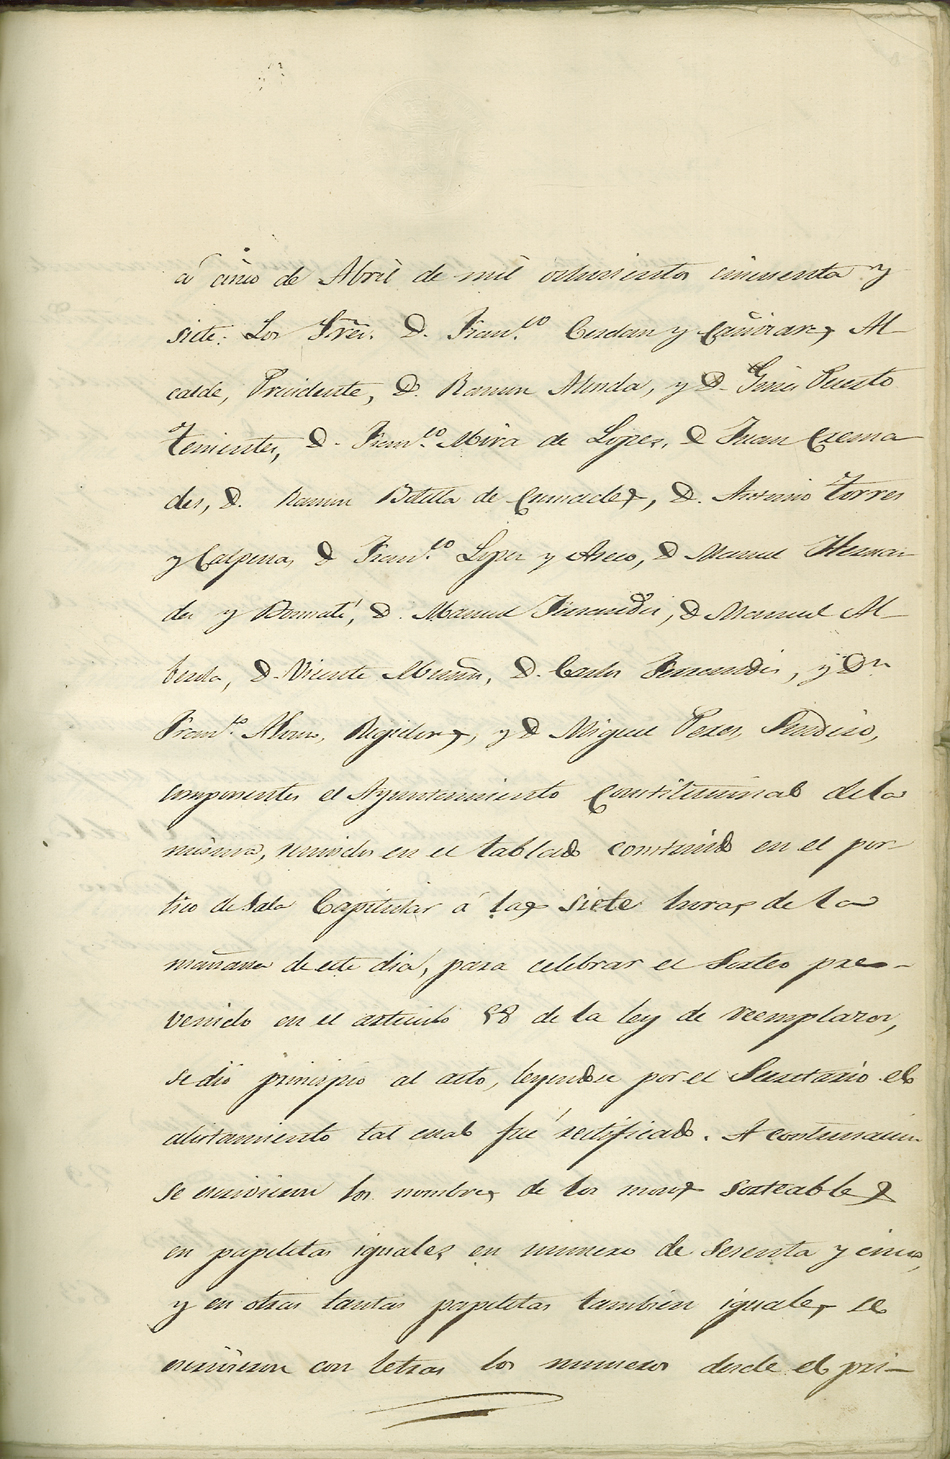 á cinco de Abril de mil ochocientos cincuenta y
siete: Los Sres. D. Fran.co Cerdan y Cañizares, Al-
calde, Presidente, D. Ramon Almda, y D. Gines Puerto
Tenientes, D. Fran.co Mira de Lopez, D Juan Crema
des, D. Ramon Botella de Cremades, D. Antonio Torres
y Calpena, D Fran.co Lopez y Aseo, D Manuel Hernan-
dez y Bernabé, D. Manuel Fernandez, D Manuel Al-
berola, D. Vicente D. Carlos Fernandez, y Dn
Fran.co Regidores, y D Miguel Perez, Sindico,
componentes el Ayuntamiento Constitucional de la
misma, reunidos en el tablado construido en el por-
tico de Sala Capitular á las siete horas de la
mañana de este dia, para celebrar el Sorteo pre-
venido en el articulo 58 de la ley de reemplazos,
se dió principio al acto, leyendose por el Secretario el
alistamiento tal cual fué rectificado. A continuacion
se escribieron los nombres de los mozos sorteables
en papeletas iguales en numero de sesenta y cinco,
y en otras tantas papeletas tambien iguales se
escribieron con letras los numeros desde el pri-